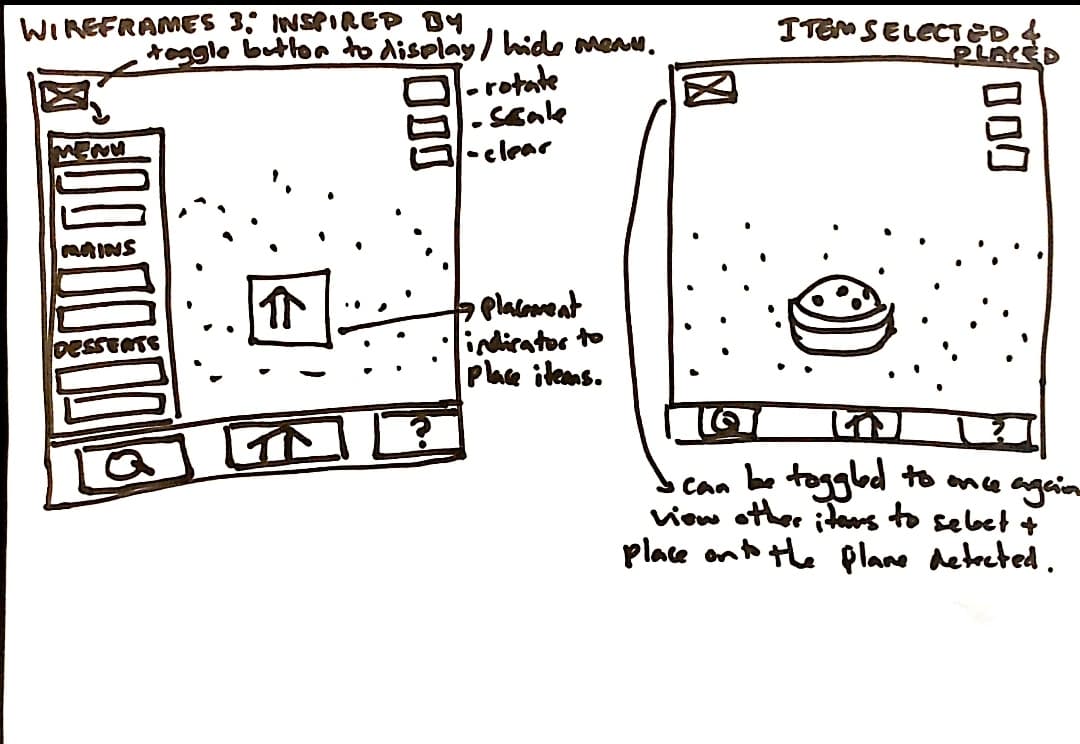 WIREFRAMES 3: INSPIRED BY
toggle button to display / hide menu.
- rotate
- scale
- clear
MENU
MAINS
DESSERTS
?
placement
indicator to
place items.
ITEM SELECTED &
PLACED
?
can be toggled to once again
view other items to select +
place onto the plane detected.